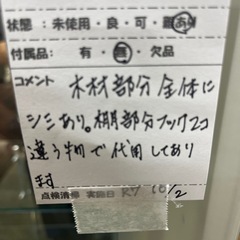 状態：未使用・良・可・難あり
付属品：有・無・欠品
コメント 木材部分全体に
シミあり。棚部分フック2コ
違う物で代用してあり
ます
点検清掃 実施日 R7 10/2